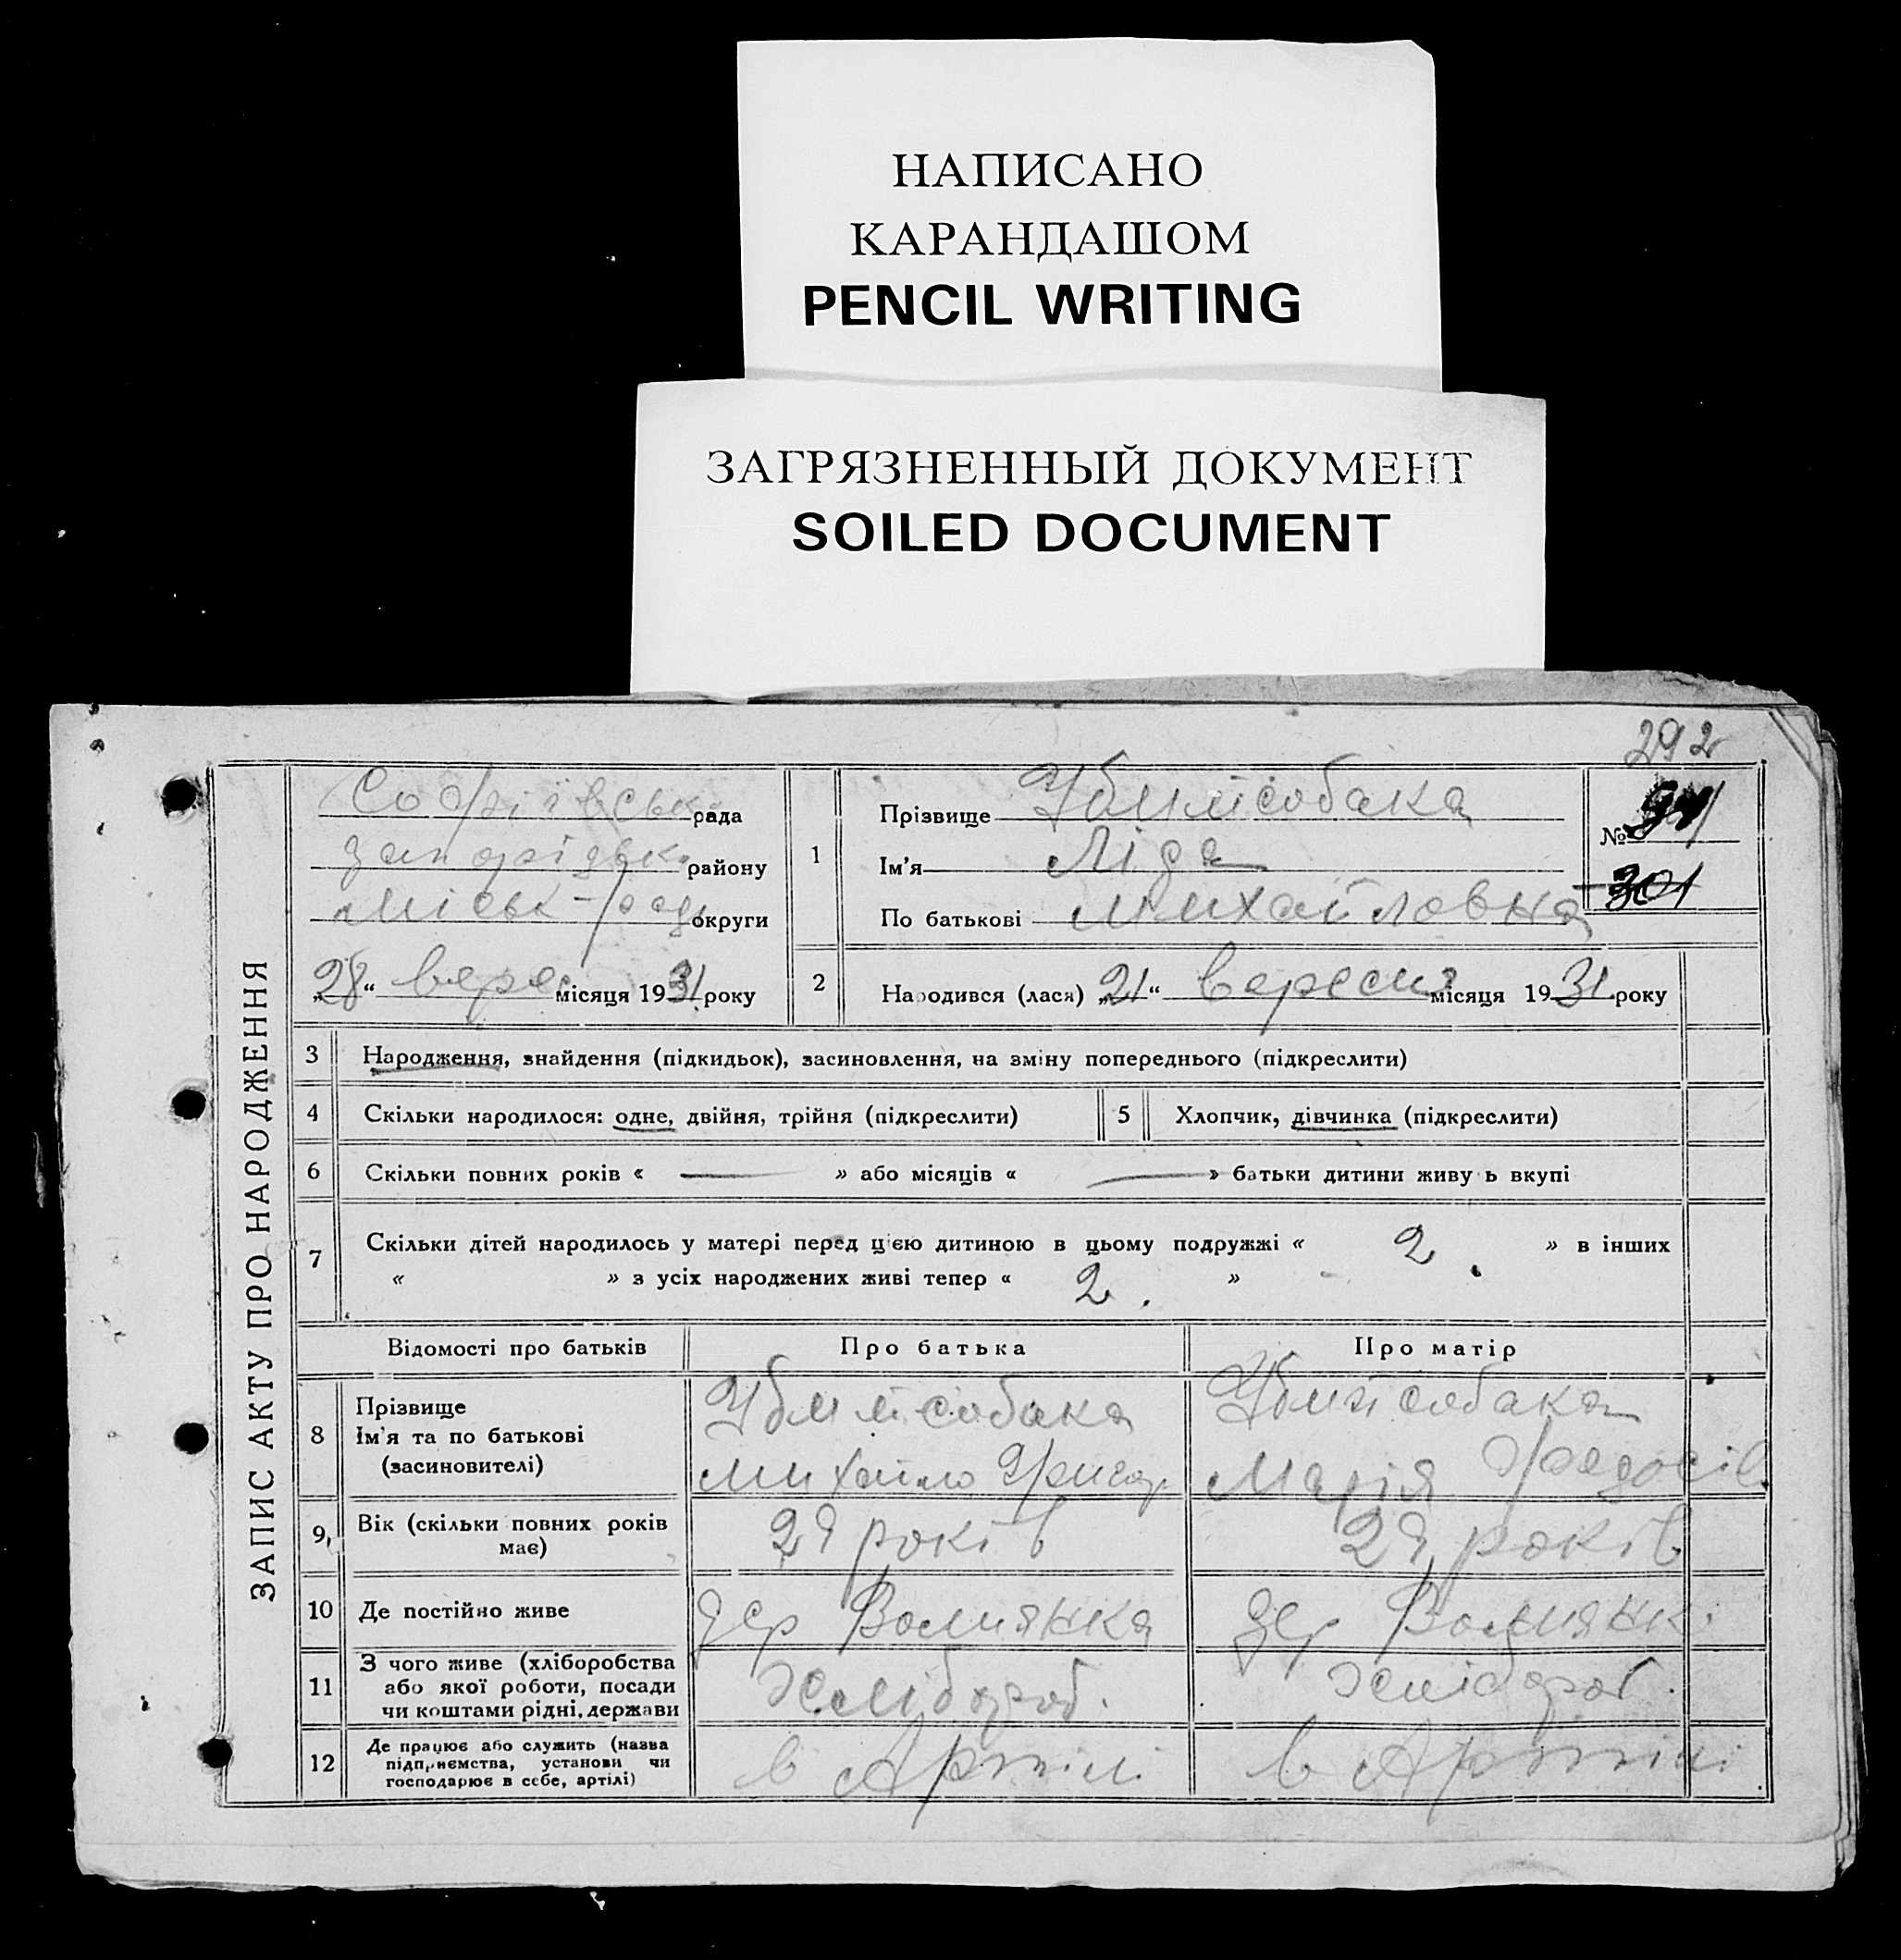 НАПИСАНО
КАРАНДАШОМ
PENCIL WRITING
ЗАГРЯЗНЕННЫЙ ДОКУМЕНТ
SOILED DOCUMENT
292
ЗАПИС АКТУ ПРО НАРОДЖЕННЯ
Софіївськ рада
району
Міськ-рад округи
„28“ верес місяця 1931 року
1
Прізвище Убийсобака
Ім'я Ліда
По батькові Михайловна
№
301
2
Народився (лася) „21“ вересня місяця 1931 року
3 Народження, знайдення (підкидьок), засиновлення, на зміну попереднього (підкреслити)
4 Скільки народилося: одне, двійня, трійня (підкреслити) 5 Хлопчик, дівчинка (підкреслити)
6 Скільки повних років « — » або місяців « — » батьки дитини живу ь вкупі
7 Скільки дітей народилось у матері перед цією дитиною в цьому подружжі « 2. » в інших
« » з усіх народжених живі тепер « 2. »
Відомості про батьків Про батька Про матір
8 Прізвище
Ім'я та по батькові
(засиновителі)
Убийсобака
Михайло Григор.
Убийсобака
Марія Федосів.
9 Вік (скільки повних років
має)
29 років 29 років
10 Де постійно живе дер дер
11 З чого живе (хліборобства
або якої роботи, посади
чи коштами рідні, держави
Хлібороб. Хлібороб.
12 Де працює або служить (назва
підприємства, установи чи
господарює в себе, артілі)
в Артілі в Артілі